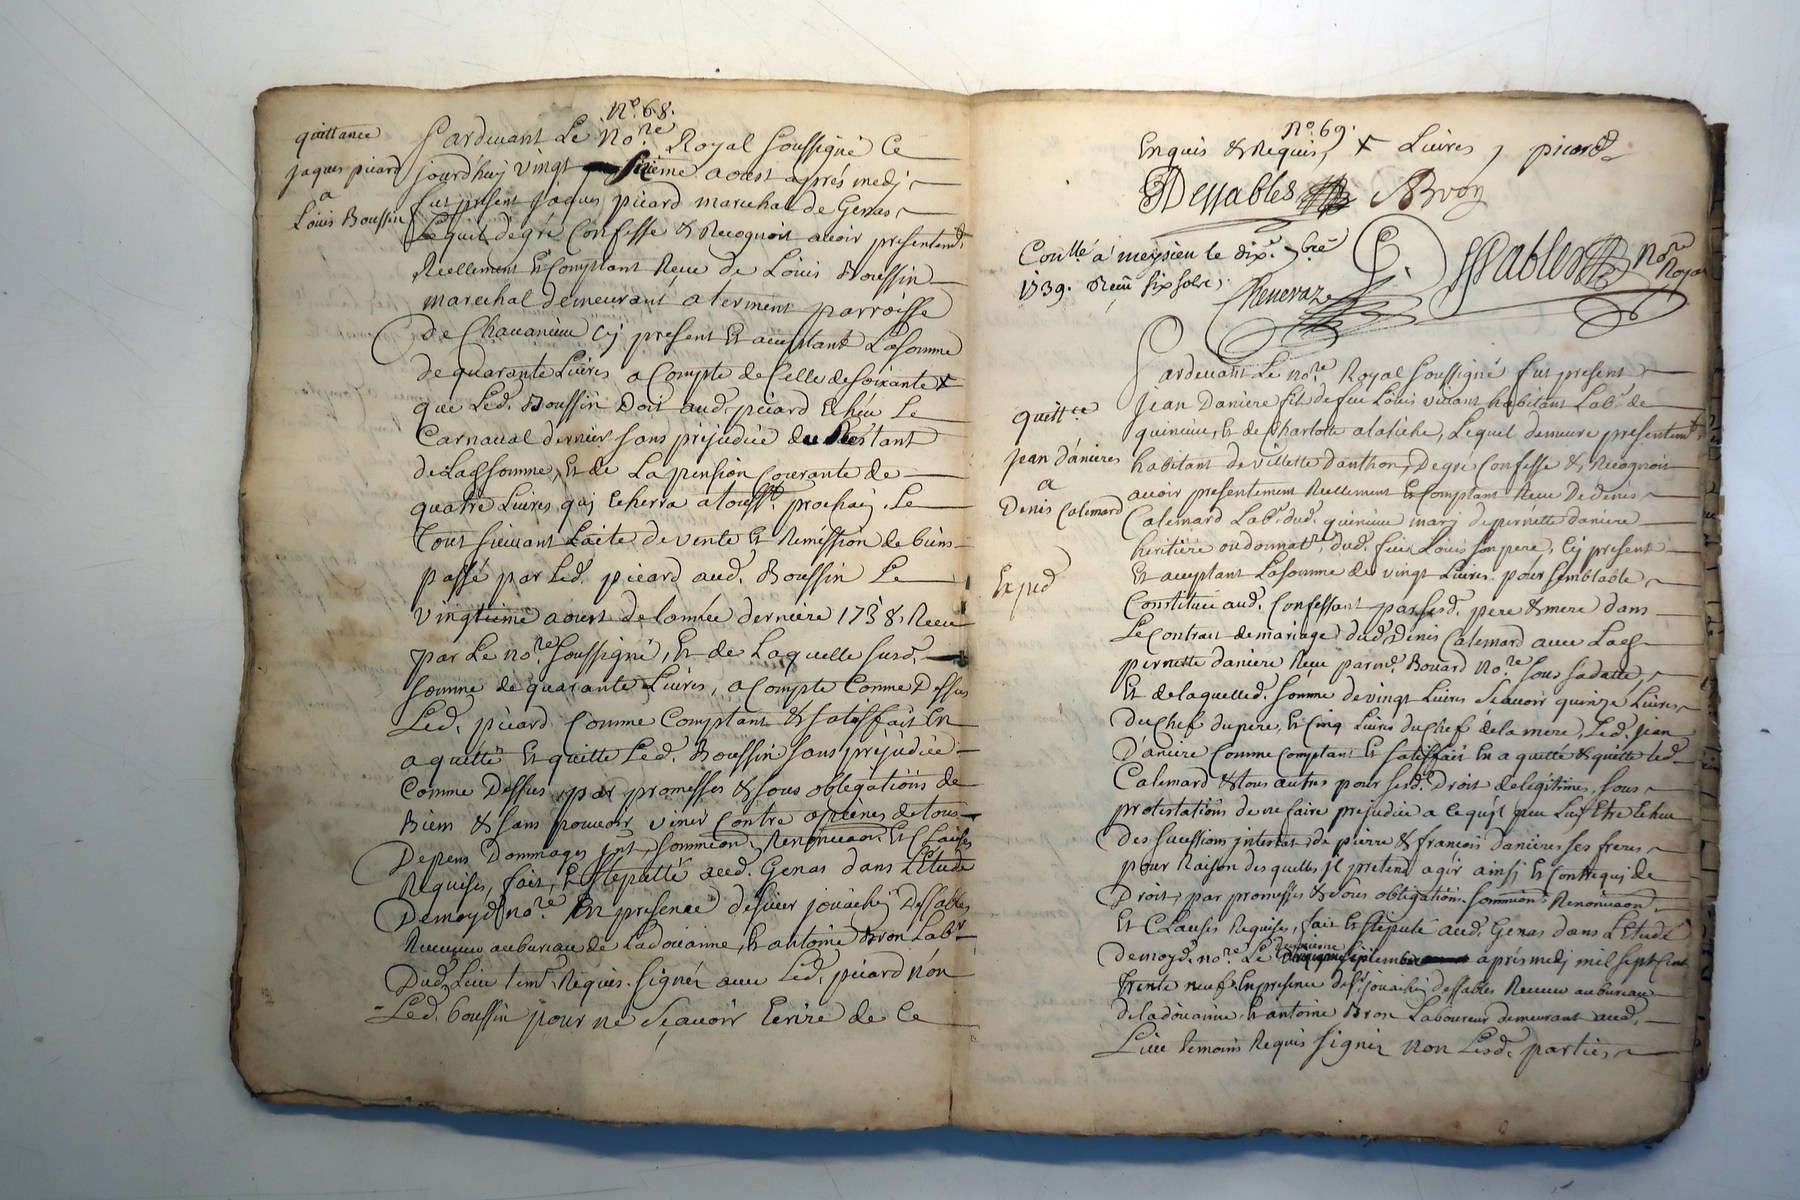 No. 68.
quittance
jaques picard
a
Louis Boussin
Pardevant Le No.re Royal soussigné Ce
jourd'huy vingt sixieme aoust aprés medj
fut present jaques picard marechal de Genas
Lequel de gré Confesse & Recognoit avoir presentemt.
Reellement Et Comptant Receu de Louis Boussin
marechal demeurant a terment parroisse
de Chavanieu Cy present Et acceptant La somme
de quarante Livres a Compte de Celle de soixante +
que Led. Boussin Doit aud. picard Echeu Le
Carnaval dernier sans prejudice du Restant
de Lad. somme, Et de La pension Courante de
quatre Livres quj Echerra a touss.t prochain, Le
Tout suivant L'acte de vente Et Remission de biens
passé par Led. picard aud. Boussin Le
vingtieme aoust de Lannée derniere 1738, Receu
par Le no.re soussigné, Et de Laquelle susd.
somme de quarante Livres, a Compte Comme Dessus
Led. picard Comme Comptant & satisfait En
a quitté Et quitte Led. Boussin sans prejudice
Comme Dessus, par promesses & sous obligations de
Biens & sans pouvoir venir Contre a peines de tous
Depens Dommages jnt. soumission, Renonciaon. Et Clauses
Requises, fait, Et stepullé aud. Genas dans L'Etude
De moyd. no.re En presence de sieur joachin Dessables
Receveur au bureau de Ladouanne, Et antoine Bron Lab.r
Dud. Lieu temt. Requis. signés avec Led. picard non
Led. boussin pour ne sçavoir Ecrire de Ce
No. 69.
Enquis & Requis, + Livres, picard
Dessables Bron
Conllé. a meysieu le dix. 7bre
1739. Receu six sols.
Cheneraz
Dessables No.re Royal
quitt.ce
jean danieres
a
Denis Calemard
Exped
Pardevant Le no.re Royal soussigné fut present
jean Daniere fils de feu Louis vivant habitant Lab.r de
quinieu, Et de Charlotte alatiche, Lequel demeure presentemt.
habitant de villette danthon, De gré Confesse & Recognoit
avoir presentement Reellement Et Comptant Receu De denis
Calemard Lab.r dud. quinieu mary de pernette daniere
heritiere ou donnat.re dud. feu Louis son pere, Cy present
Et acceptant La somme de vingt Livres pour semblable
Constituée aud. Confessant par sesd. pere & mere dans
Le Contrait de mariage dud. Denis Calemard avec Lad.
pernette daniere Receu par me. Bouard No.re sous sa datte,
Et de laquelled. somme de vingt Livres scavoir quinze Livres
Du Chef du pere, Et Cinq Livres du Chef de la mere, Led. jean
Daniere Comme Comptant Et satisfait En a quitté & quitte led.
Calemard & tous autres pour sesd. Droit de legitimes, sous
protestations de ne faire prejudice a Ce qu'jl peu Luy Etre Echeu
Des successions jntestat, de pierre & francois danieres ses freres
pour Raison des quelles jl pretend agir ainsj Et Contre quj de
Droit, par promesses & sous obligations soumission Renonciaon.
Et Clauses Requises, fait Et stepulé aud. Genas dans L'Etude
De moyd. no.re Le septembre aprés medj mil sept Cent
trente neuf, En presence de sr. joachin dessables Receveur au bureau
de la douanne, Et antoine Bron Laboureur demeurant aud.
Lieu temoins Requis signés non Lesd. parties